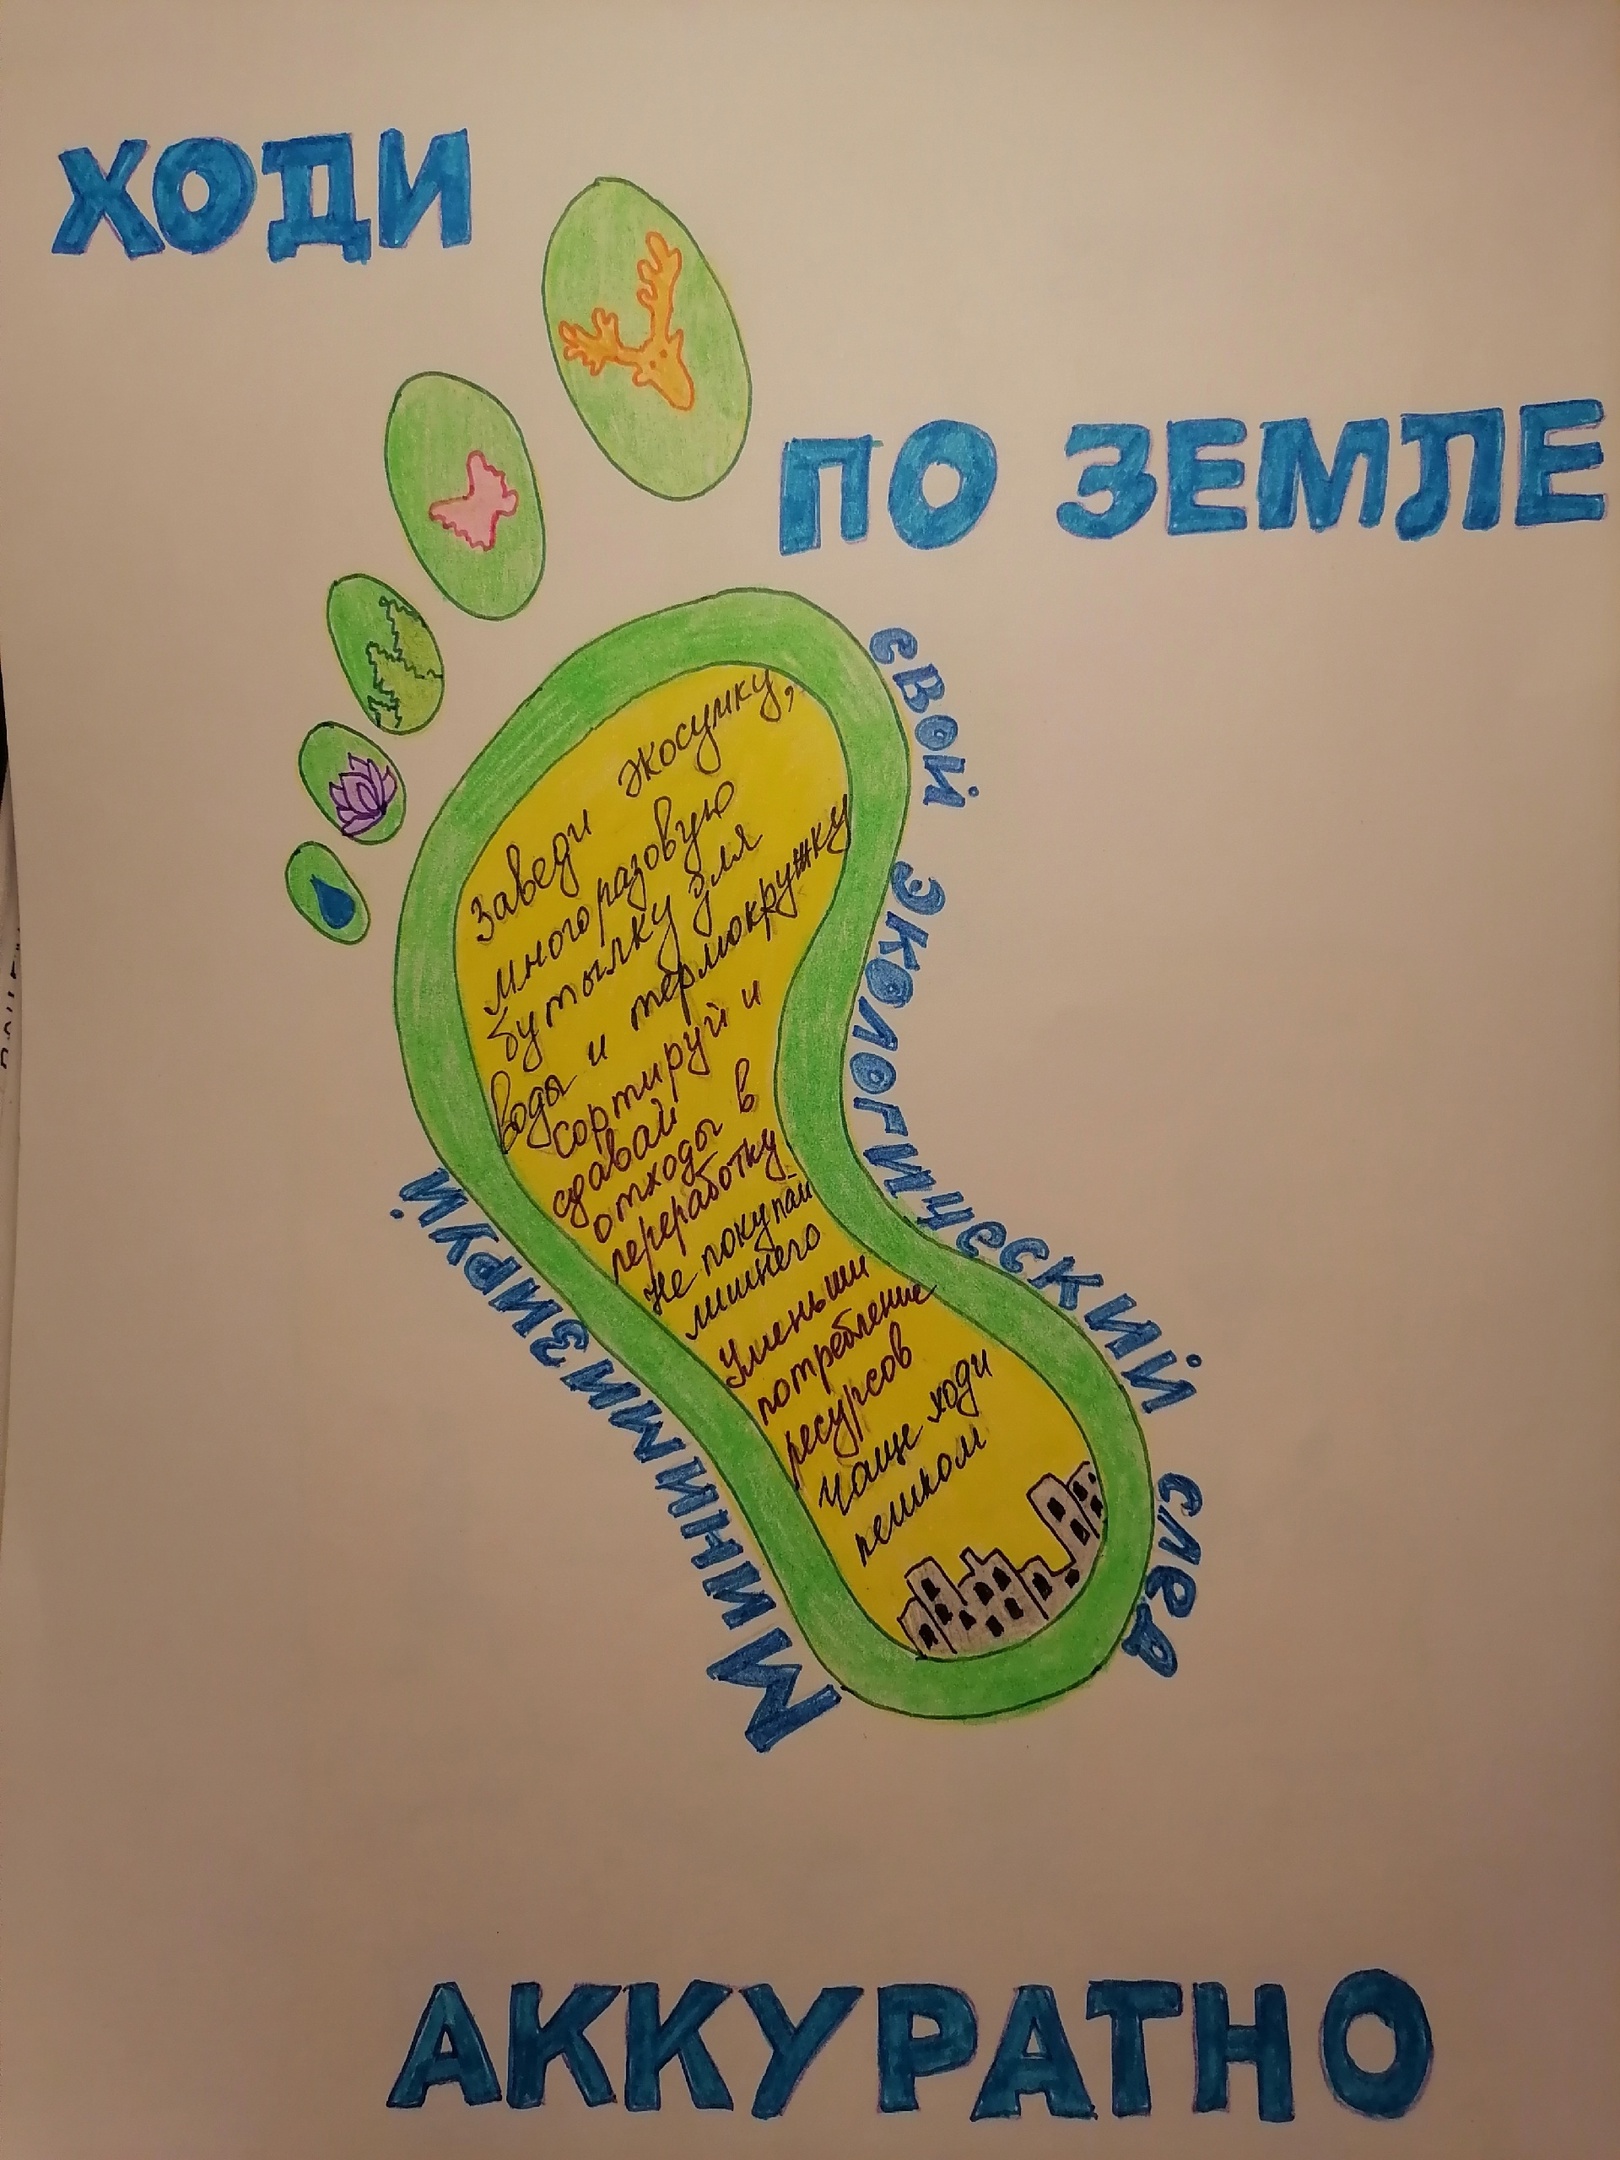 ХОДИ
ПО ЗЕМЛЕ
Минимизируй
свой экологический след
Заведи экосумку,
многоразовую
бутылку для
воды и термокружку
сортируй и
сдавай
отходы в
переработку
Не покупай
лишнего
Уменьши
потребление
ресурсов
Чаще ходи
пешком
АККУРАТНО